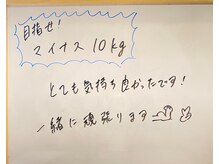 目指せ!
マイナス10kg
とても気持ち良かったです!
一緒に頑張ります